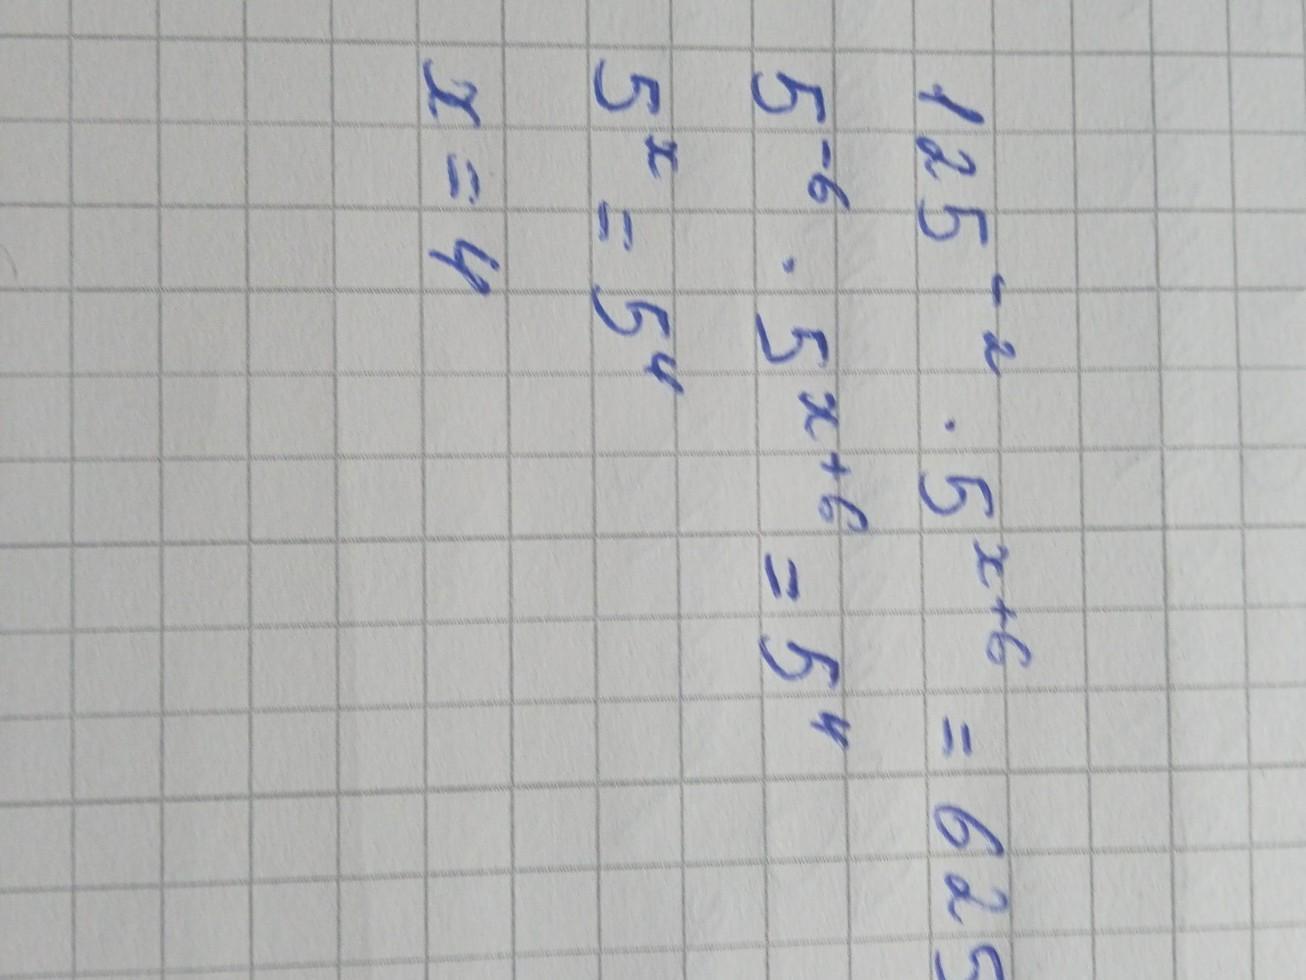 125⁻² · 5ˣ⁺⁶ = 625
5⁻⁶ · 5ˣ⁺⁶ = 5⁴
5ˣ = 5⁴
x = 4